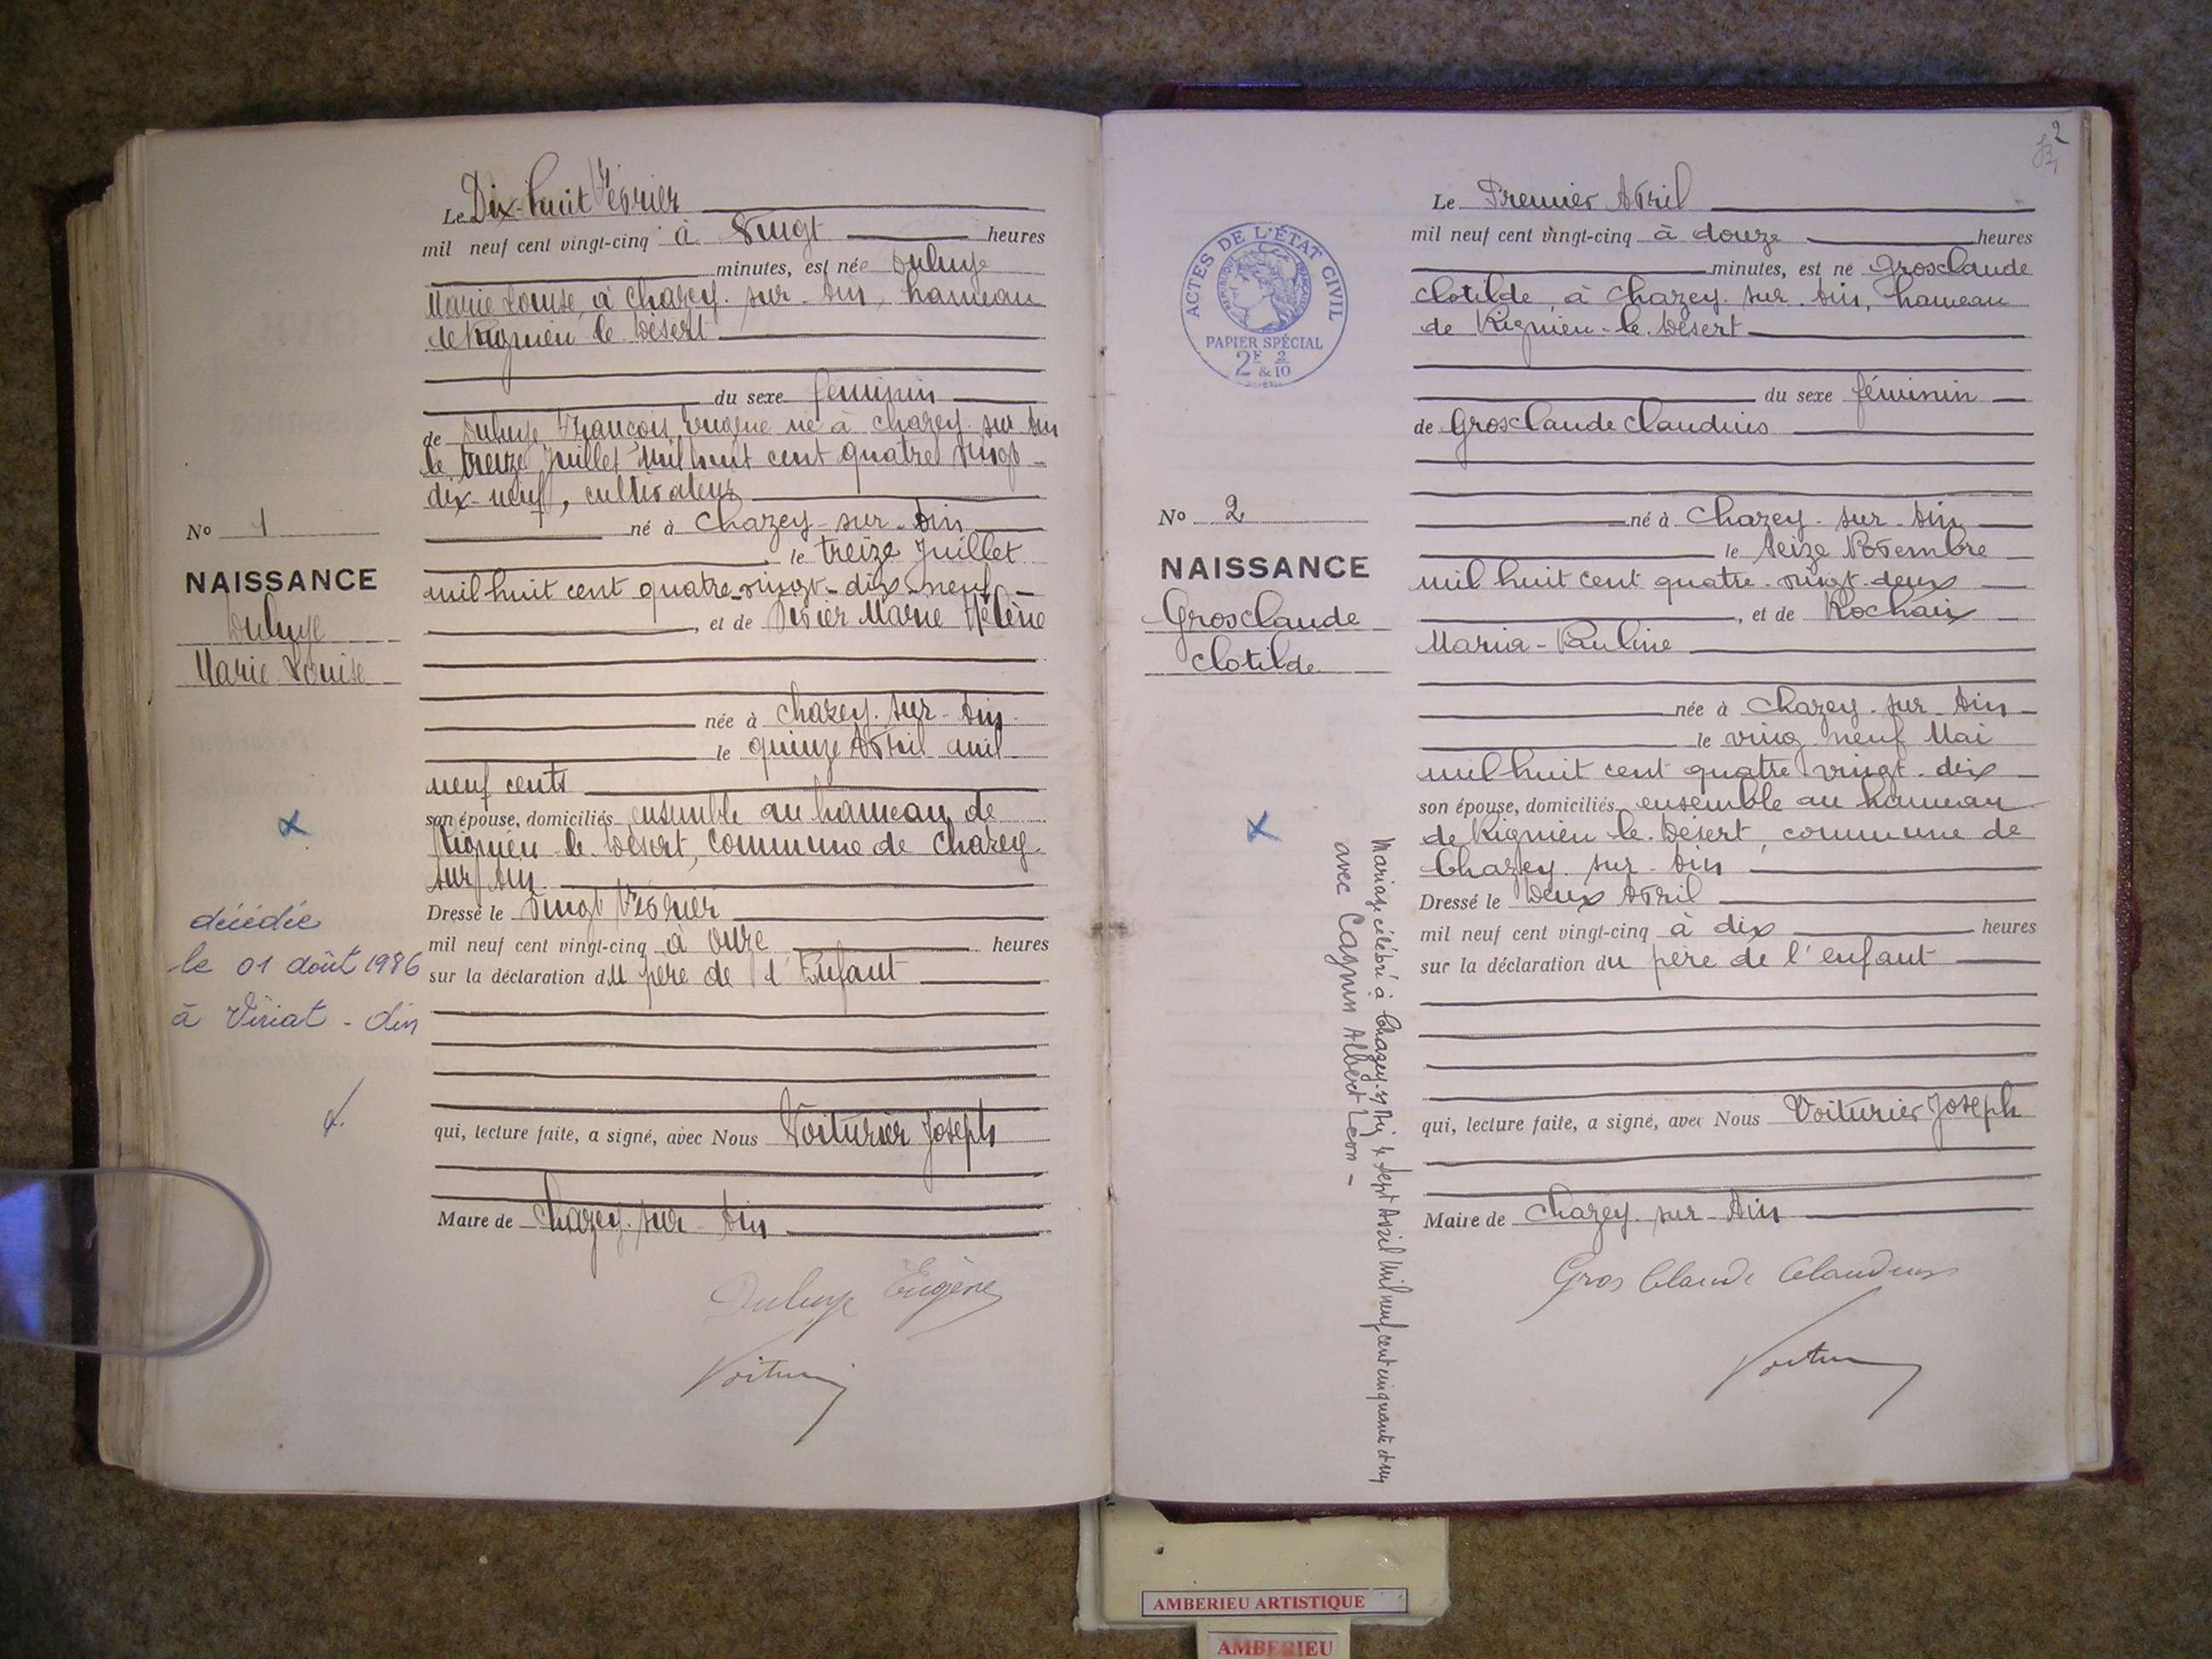 Le Dix-huit Février
mil neuf cent vingt-cinq à Vingt heures
minutes, est née Duluye
Marie Louise, à Chazey-sur-Ain, hameau
de Rignieu le Désert
du sexe féminin
de Duluye François Eugène né à Chazey-sur-Ain
le treize Juillet Mil huit cent quatre Vingt
dix-neuf, cultivateur
né à Chazey-sur-Ain
le treize Juillet
mil huit cent quatre-vingt-dix-neuf
, et de Marie Hélène
née à Chazey-sur-Ain
le quinze Avril mil
neuf cents
son épouse, domiciliés ensemble au hameau de
Rignieu-le-Désert, commune de Chazey
sur Ain
Dressé le Vingt Février
mil neuf cent vingt-cinq à onze heures
sur la déclaration du père de l'Enfant
qui, lecture faite, a signé, avec Nous Voiturier Joseph
Maire de Chazey-sur-Ain
Duluye Eugène
No 1
NAISSANCE
Duluye
Marie Louise
décédée
le 01 août 1986
à Viriat - Ain
2
Le Premier Avril
mil neuf cent vingt-cinq à douze heures
minutes, est né Grosclaude
Clotilde, à Chazey-sur-Ain, hameau
de Rignieu-le-Désert
du sexe féminin
de Grosclaude Claudius
né à Chazey-sur-Ain
le seize Novembre
mil huit cent quatre-vingt-deux
, et de Rochaix
Maria-Pauline
née à Chazey-sur-Ain
le ving neuf Mai
mil huit cent quatre vingt-dix
son épouse, domiciliés ensemble au hameau
de Rignieu-le-Désert, commune de
Chazey-sur-Ain
Dressé le Deux Avril
mil neuf cent vingt-cinq à dix heures
sur la déclaration du père de l'enfant
qui, lecture faite, a signé, avec Nous Voiturier Joseph
Maire de Chazey-sur-Ain
Gros Claude Claudius
ACTES DE L'ÉTAT CIVIL
RÉPUBLIQUE FRANÇAISE
PAPIER SPÉCIAL
2F 2
& 10
No 2
NAISSANCE
Grosclaude
Clotilde
Mariage célébré à Chazey-s/Ain le sept Avril Mil neuf cent cinquante et un
avec Albert Léon -
AMBERIEU ARTISTIQUE
AMBERIEU